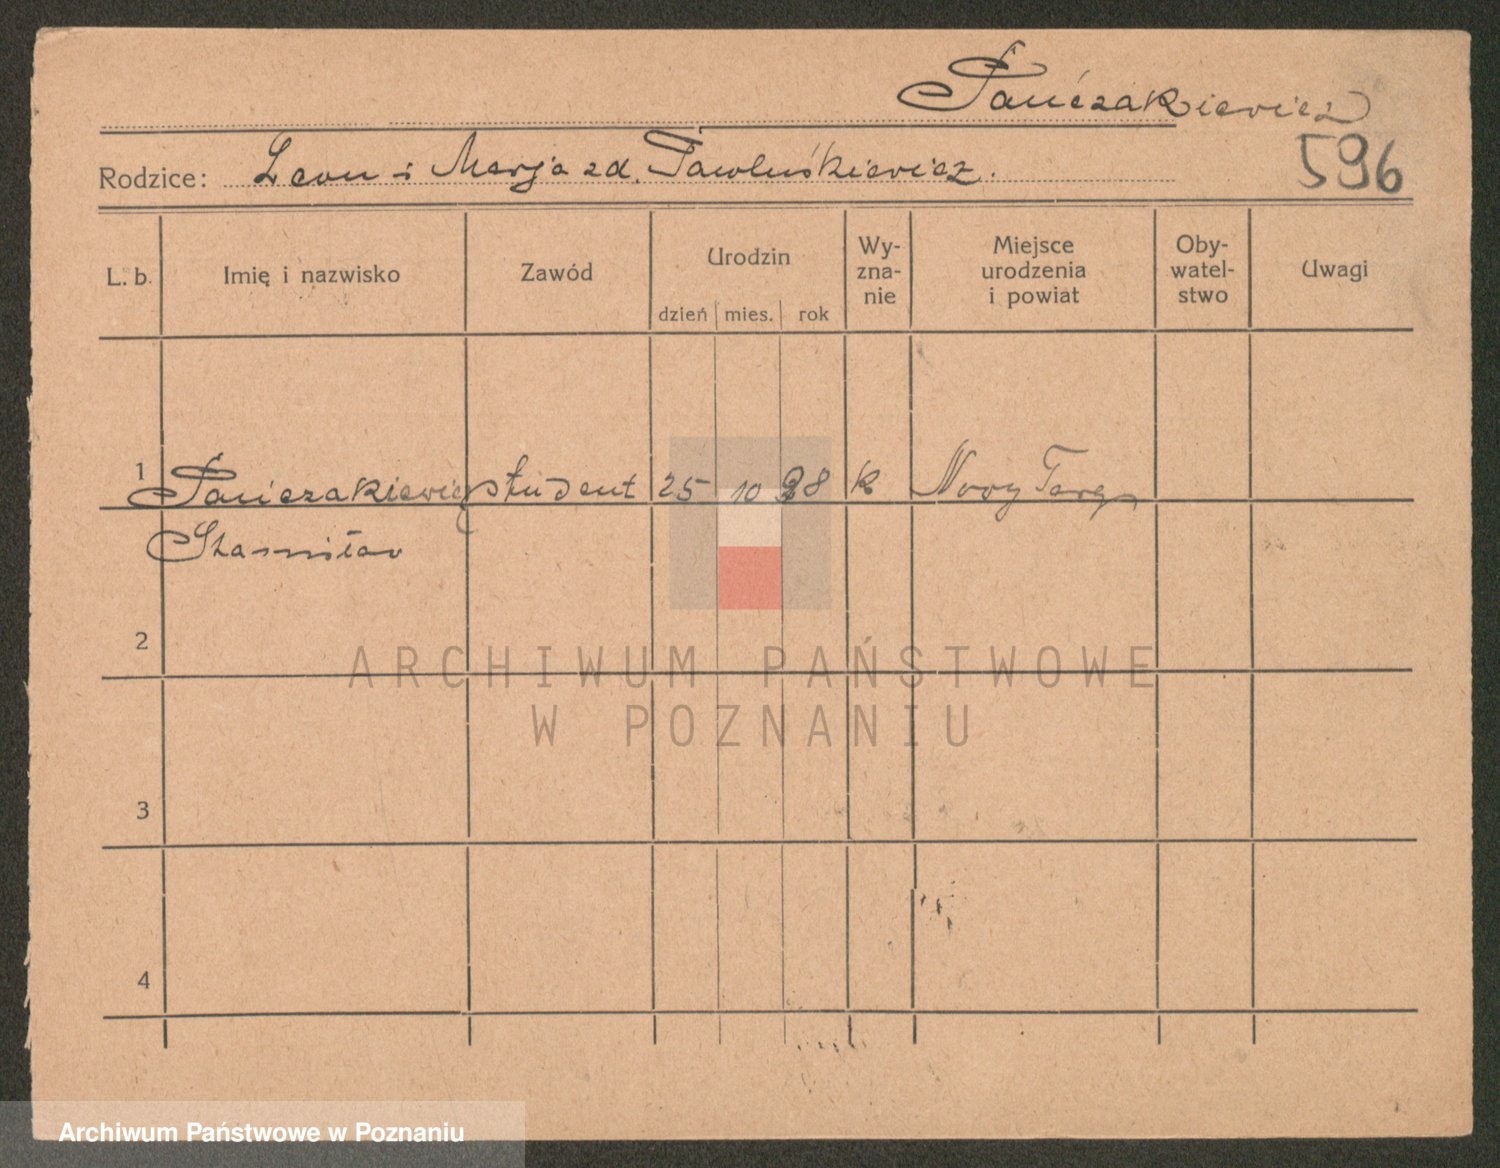 Pańczakiewicz
596
Rodzice: Leon i Marja zd. Pawluśkiewicz.
L. b.
Imię i nazwisko
Zawód
Urodzin
dzień mies. rok
Wy-
zna-
nie
Miejsce
urodzenia
i powiat
Oby-
watel-
stwo
Uwagi
1 Pańczakiewicz student 25 10 28 k Nowy Targ
Stanisław
2
3
4
ARCHIWUM PAŃSTWOWE
W POZNANIU
Archiwum Państwowe w Poznaniu